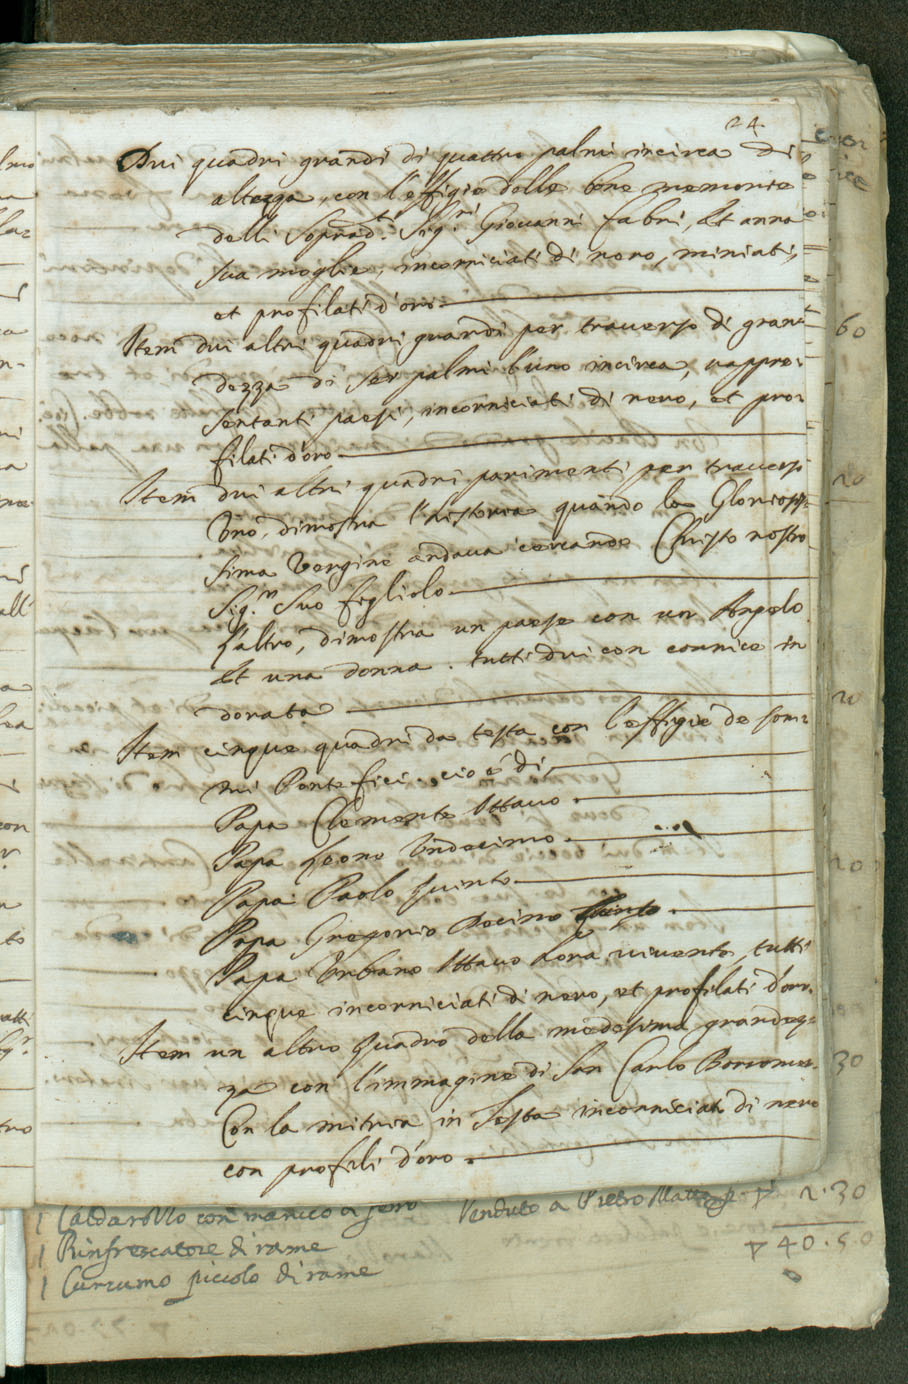 24.
Dui quadri grandi di quattro palmi incirca di
altezza, con l'effigie delle bone memorie
delli Soprad.ti Sig.ri Giovanni Fabri, et Anna
sua moglie, incorniciati di nero, miniati,
et profilati d'oro
Item dui altri quadri grandi per traverso di gran=
dezza di sei palmi l'uno incirca, rappre=
sentanti paesi, incorniciati di nero, et pro=
filati d'oro
Item dui altri quadri parimenti per traverso
Uno, dimostra l'historia quando la Gloriosis=
sima Vergine andava cercando Christo nostro
Sig.re Suo figliolo
L'altro, dimostra un paese con un Angelo
et una donna. tutti dui con cornice in
dorata
Item cinque quadri da testa con l'effigie de som=
mi Pontefici. cio è di
Papa Clemente Ottavo.
Papa Leone Undecimo.
Papa Paolo Quinto
Papa Gregorio Decimo Quinto.
Papa Urbano Ottavo hora vivente, tutti
cinque incorniciati di nero, et profilati d'oro.
Item un altro Quadro della medesima grandez=
za con l'immagine di San Carlo Borromeo
Con la mitria in Testa incorniciati di nero
con profili d'oro.
60
20
20
20
30
1 Caldarollo con manico di ferro Venduto a Pietro 2.30
1 Rinfrescatore di rame
40.50
1 Cucumo piccolo di rame